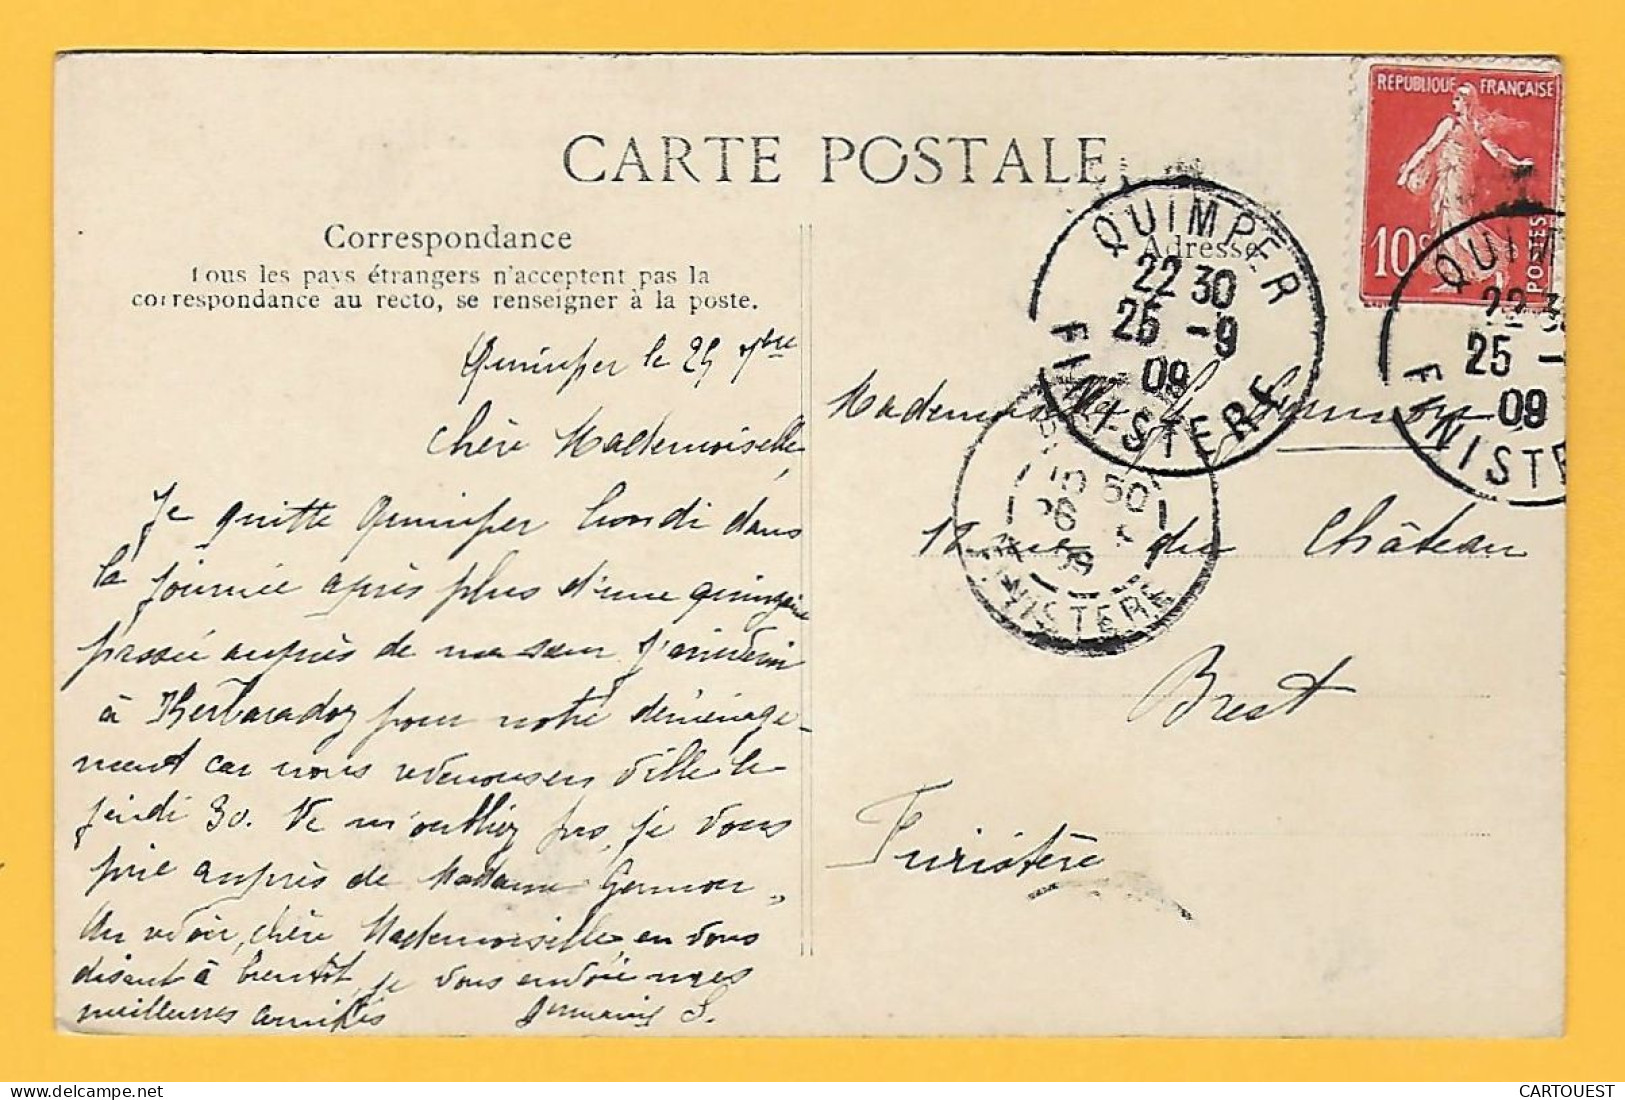 CARTE POSTALE
Correspondance
Tous les pays étrangers n'acceptent pas la
correspondance au recto, se renseigner à la poste.
Adresse
REPUBLIQUE FRANÇAISE
10c
POSTES
QUIMPER
22 30
25 -9
09
FINISTERE
QUIM
22 3
25 -
09
FINISTE
10 50
26
09
FINISTERE
Quimper le 25 7bre
Chère Mademoiselle,
Je quitte Quimper lundi dans
la journée après plus d'une quinzaine
passée auprès de ma sœur
à pour notre déménage-
ment car nous ville le
jeudi 30. Ne m'oubliez pas, je vous
prie auprès de Madame Germon.
Au revoir, chère Mademoiselle, en vous
disant à bientôt, je vous envoie mes
meilleures amitiés Germaine S.
Mademoiselle G. Germon
12 rue du Château
Brest
Finistère
CARTOUEST